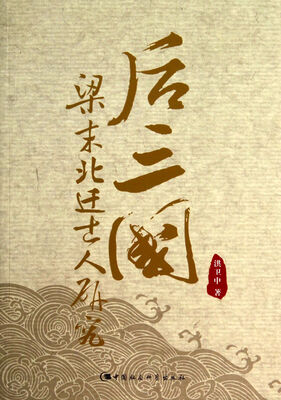 后三國
梁末北迁士人研究
洪卫中 著
中国社会科学出版社